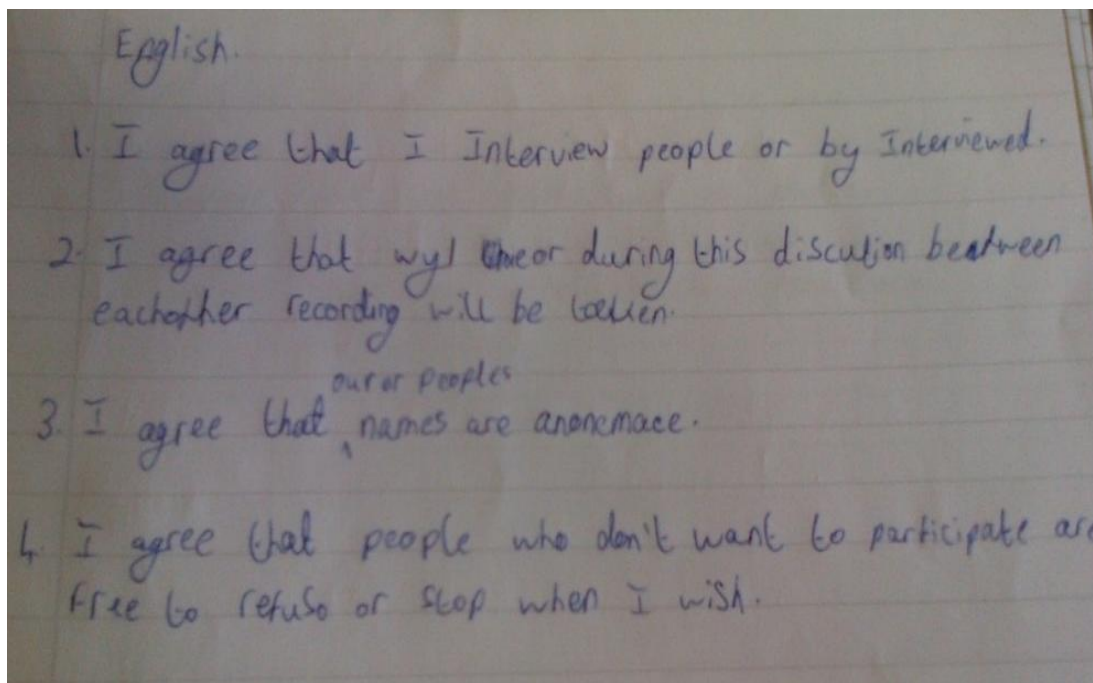 English.
1. I agree that I Interview people or by Interviewed.
2. I agree that wyl or during this discution beatween
eachother recording will be taeken.
our or peoples
3. I agree that ‸ names are anonemace.
4. I agree that people who don't want to participate are
free to refuse or stop when I wish.